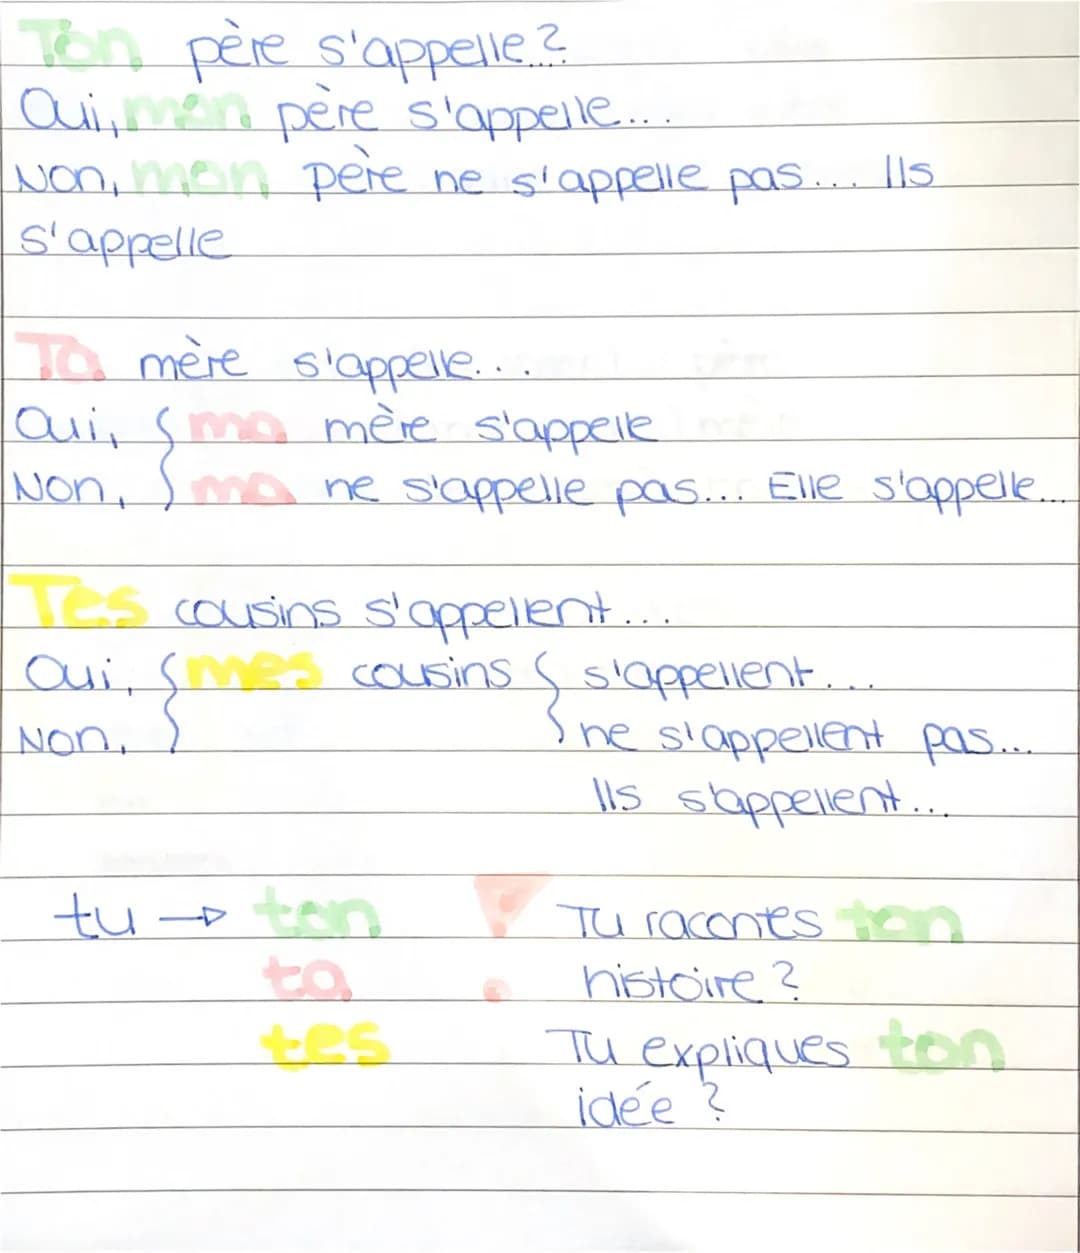 Ton père s'appelle...?
Oui, mon père s'appelle...
Non, mon père ne s'appelle pas... Ils
s'appelle
Ta mère s'appelle...
Oui, { ma mère s'appelle
Non, ma ne s'appelle pas... Elle s'appelle...
Tes cousins s'appellent...
Oui, { mes cousins { s'appellent...
Non, ne s'appellent pas...
Ils s'appellent...
tu → ton ! Tu racontes ton
ta histoire ?
tes Tu expliques ton
idée ?